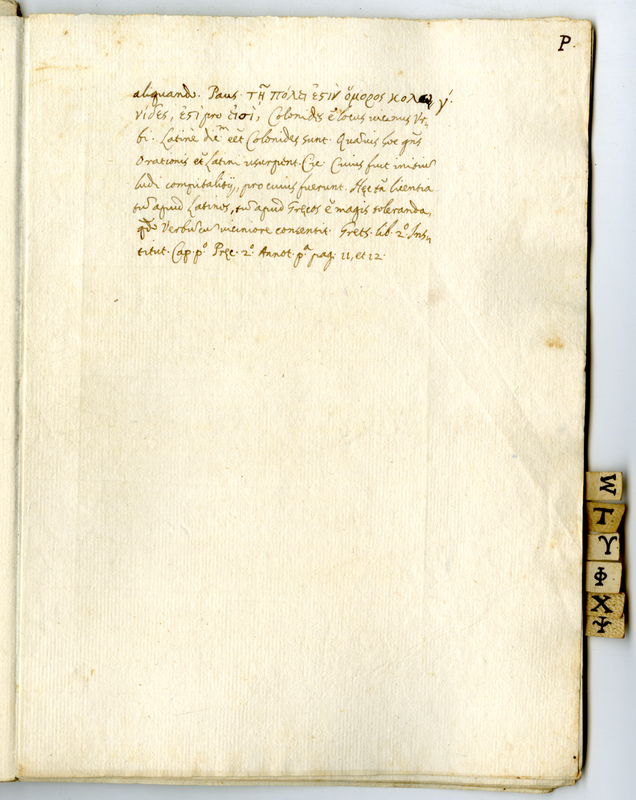 P
aliquando. Paus. τῇ πόλει ἐϛὶν ὅμορος κολω
νίδες, ἐϛὶ pro εἰσὶ, Colonides ẽ locus vicinus Ur-
bi. Latine dic̃m eẽt Colonides sunt. Quãuis hoc gñs
orationis et Latini usurpent. Cic. Cuius fuit initiũ
ludi compitalitij, pro cuius fuerunt. Hęc tñ licentia
tũ apud Latinos, tũ apud Gręcos ẽ magis toleranda,
qñdo Verbũ cũ viciniore consentit. Grets. lib. 2º. Ins-
titut. Cap. pº. Pręc. 2º. Annot. pª. pag. 11, et 12.
Σ
Τ
Υ
Φ
Χ
Ψ